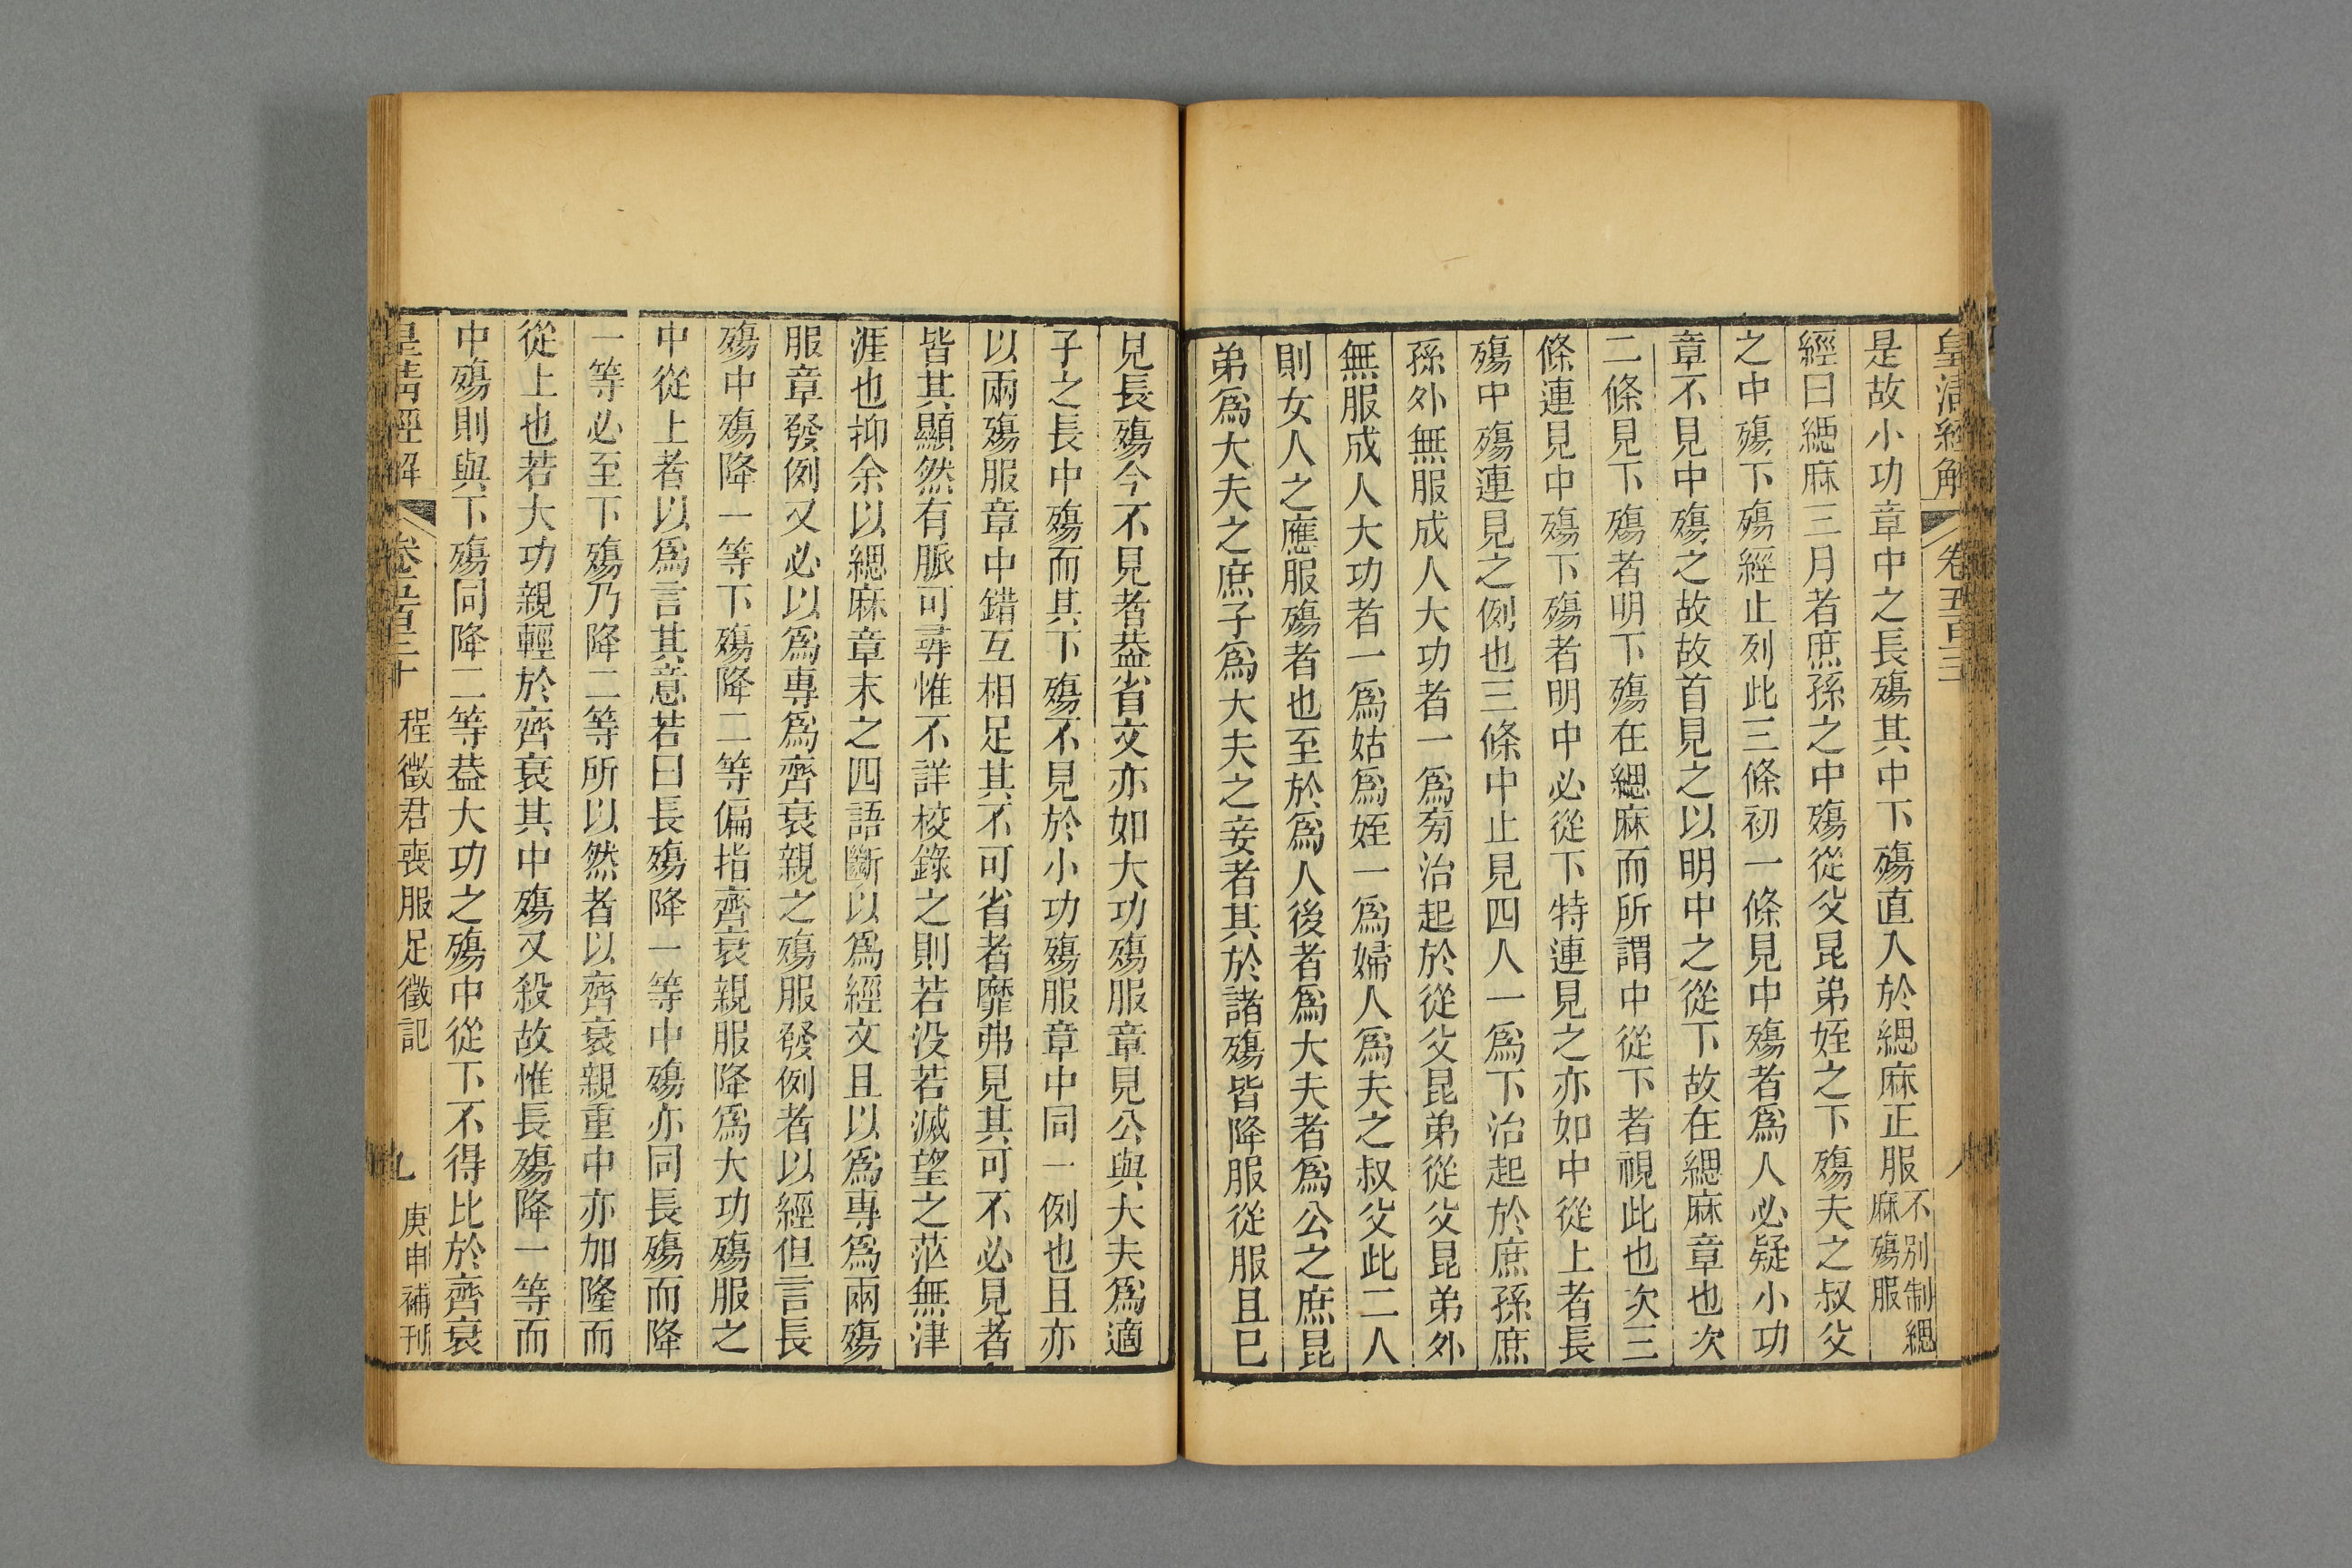 皇清經解 卷五百三 八
是故小功章中之長殤其中下殤直入於緦麻正服不別制緦麻殤服
經曰緦麻三月者庶孫之中殤從父昆弟姪之下殤夫之叔父
之中殤下殤經止列此三條初一條見中殤者爲人必疑小功
章不見中殤之故故首見之以明中之從下故在緦麻章也次
二條見下殤者明下殤在緦麻而所謂中從下者視此也次三
條連見中殤下殤者明中必從下特連見之亦如中從上者長
殤中殤連見之例也三條中止見四人一爲下治起於庶孫庶
孫外無服成人大功者一爲旁治起於從父昆弟從父昆弟外
無服成人大功者一爲姑爲姪一爲婦人爲夫之叔父此二人
則女人之應服殤者也至於爲人後者爲大夫者爲公之庶昆
弟爲大夫之庶子爲大夫之妾者其於諸殤皆降服從服且巳
見長殤今不見者葢省文亦如大功殤服章見公與大夫爲適
子之長中殤而其下殤不見於小功殤服章中同一例也且亦
以兩殤服章中錯互相足其不可省者靡弗見其可不必見者
皆其顯然有脈可尋惟不詳校錄之則若没若滅望之茫無津
涯也抑余以緦麻章末之四語斷以爲經文且以爲專爲兩殤
服章發例又必以爲專爲齊衰親之殤服發例者以經但言長
殤中殤降一等下殤降二等偏指齊衰親服降爲大功殤服之
中從上者以爲言其意若曰長殤降一等中殤亦同長殤而降
一等必至下殤乃降二等所以然者以齊衰親重中亦加隆而
從上也若大功親輕於齊衰其中殤又殺故惟長殤降一等而
中殤則與下殤同降二等葢大功之殤中從下不得比於齊衰
皇清經解 卷五百三十 程徵君喪服足徵記 九 庚申補刊